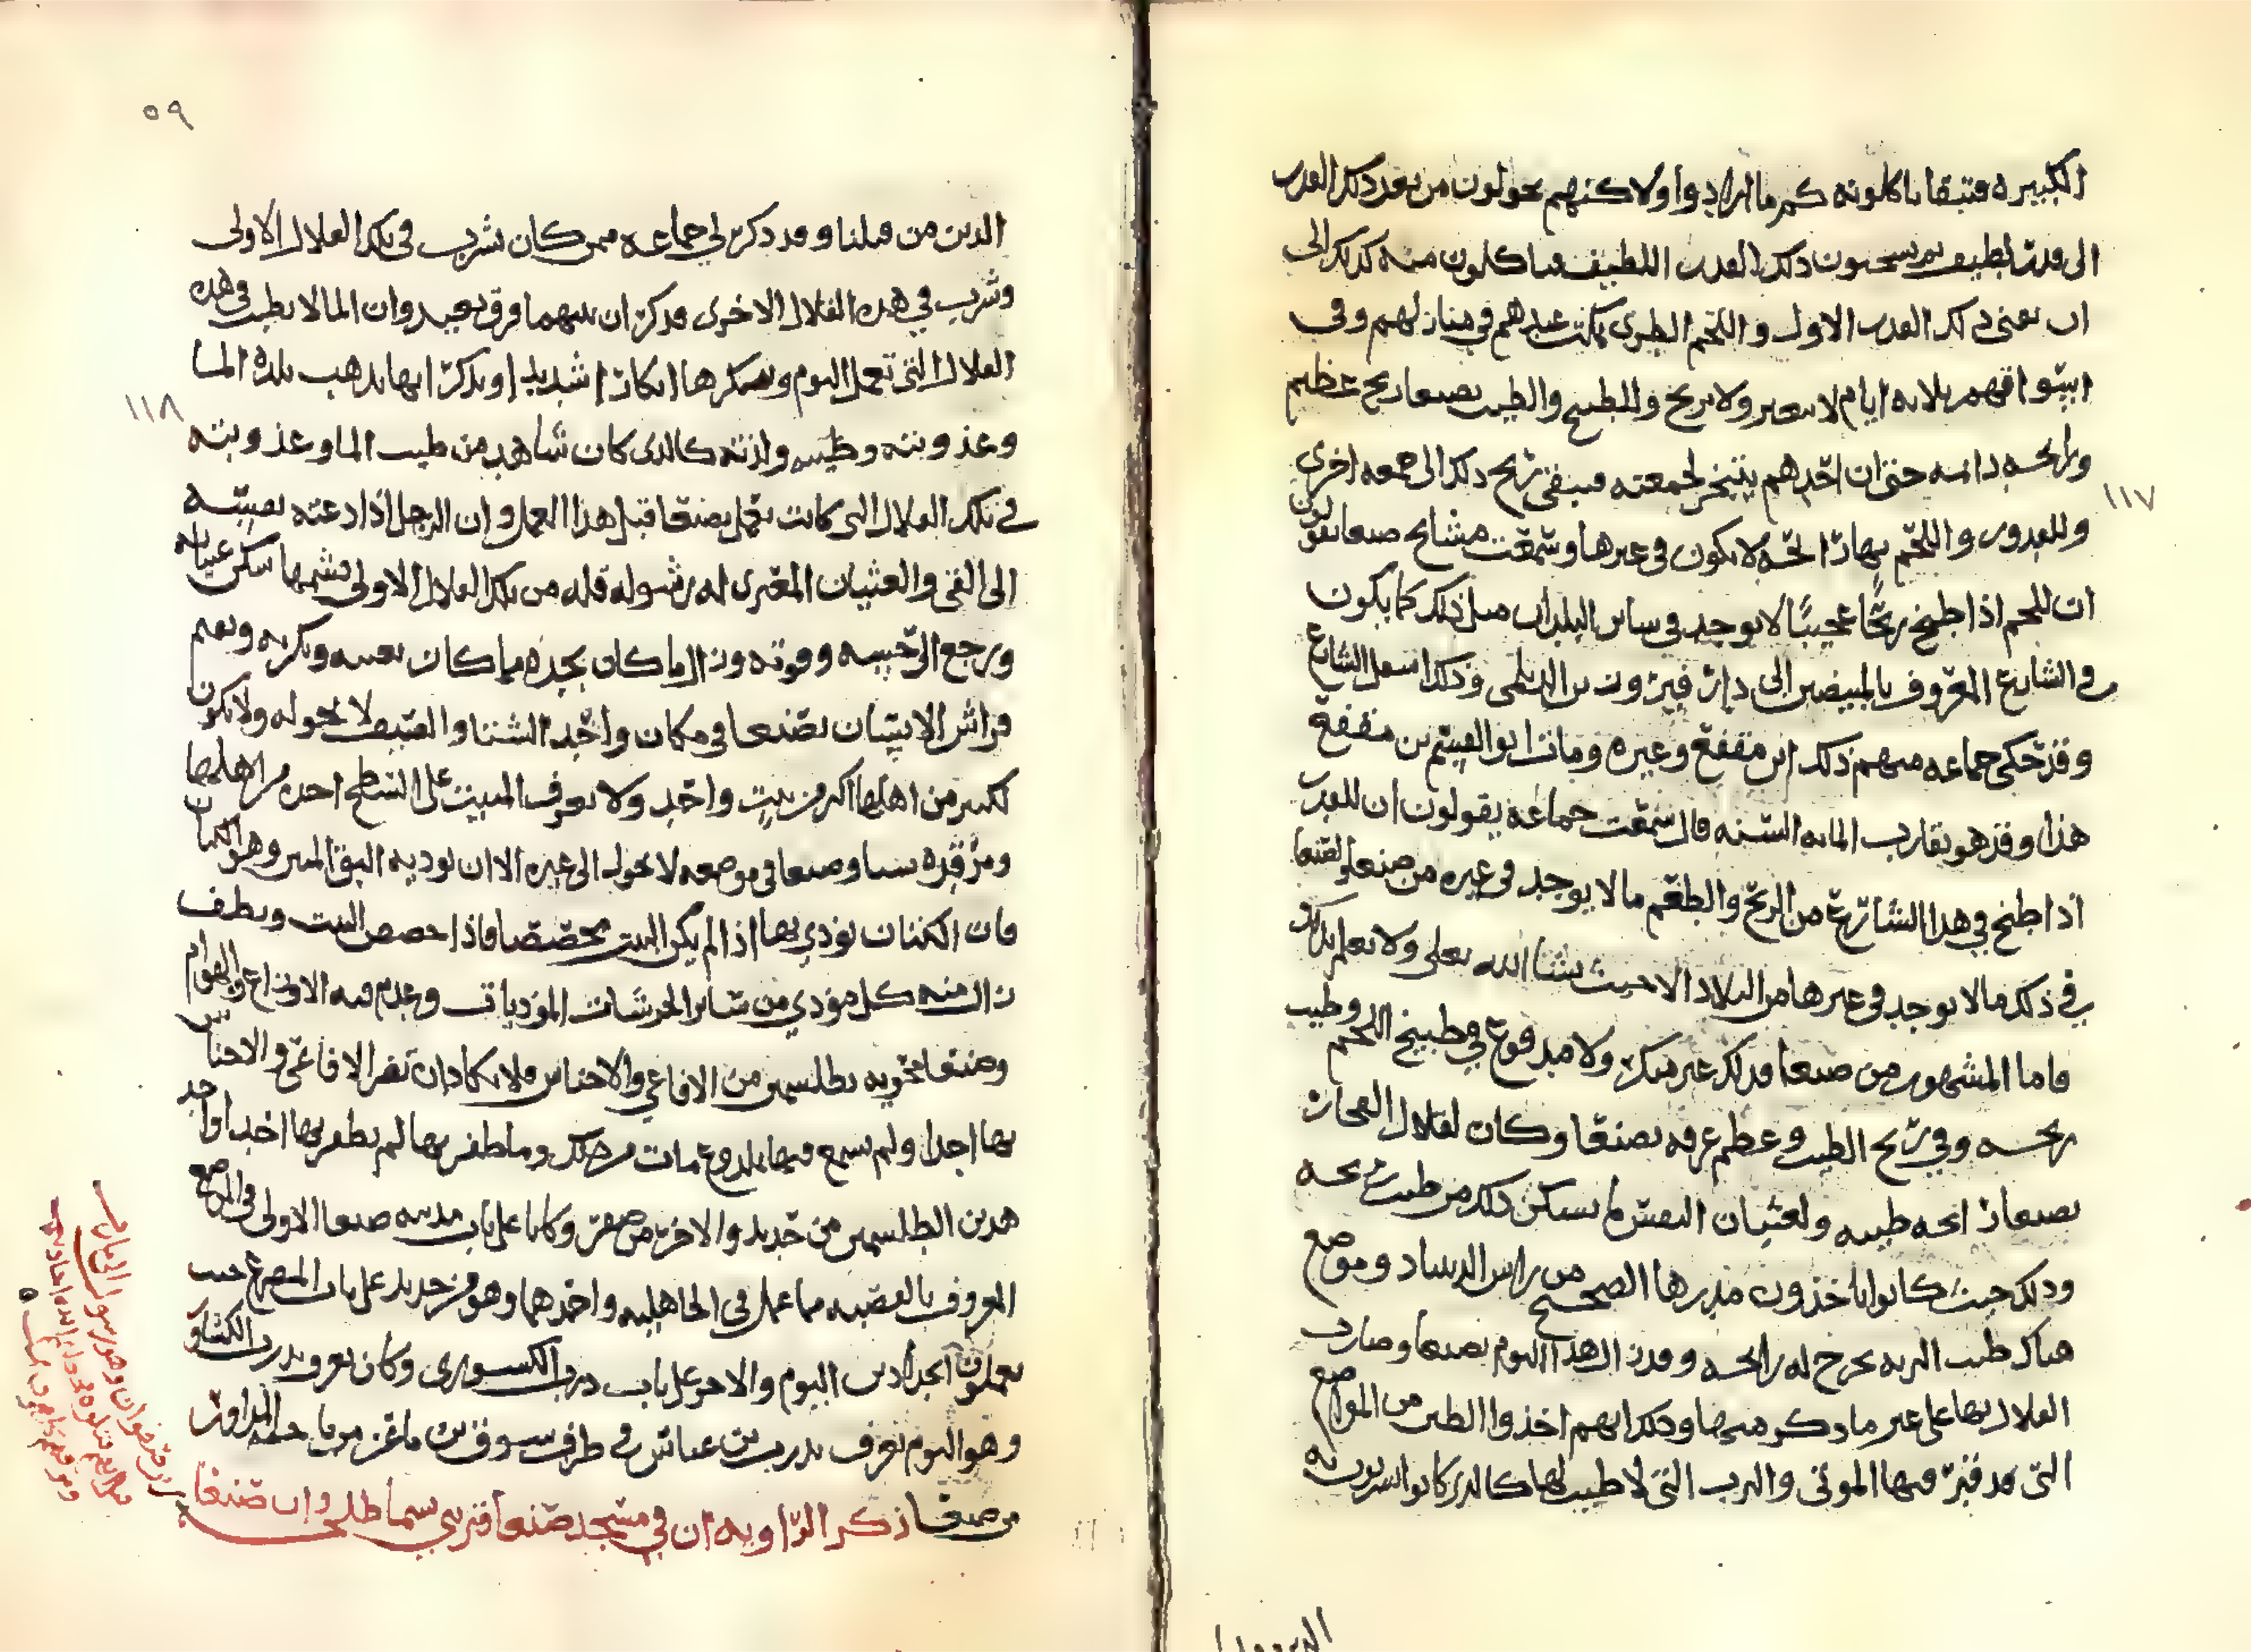 الكبيره فتبقا ياكلونه كم ما ارادوا ولاكنهم يحولون من بعد ذلك القدر
الى قدر لطيف ثم يسخنون ذلك القدر اللطيف فياكلون منه كذلك الى
ان يفنى ذلك القدر الاول واللحم الطري يمكث عندهم في منازلهم وفي
اسواقهم ثلاثه ايام لا يتغير ولا يريح وللطبيخ والطيب بصنعا ريح عظيم
ورايحه دايمه حتى ان احدهم يتبخر لجمعته فيبقى ريح ذلك الى جمعه اخرى
وللقدور واللحم بها رايحه لا يكون في غيرها وسمعت مشايخ صنعا يقولون
ان للحم اذا طبخ ريحًا عجيبًا لا يوجد في ساير البلدان مثل ذلك كما يكون
في الشارع المعروف بالمبيضين الى دار فيروز بن الديلمي وذلك اسفل الشارع
وقد حكى جماعه منهم ذلك ابن مقفع وغيره ومات ابو القسم بن مقفع
هذا وقد هو يقارب المايه السنه قال سمعت جماعه يقولون ان للقدر
اذا طبخ في هذا الشارع من الريح والطعم ما لا يوجد في غيره من صنعا ولصنعا
في ذلك ما لا يوجد في غيرها من البلاد الا حيث يشا الله تعالى ولا نعلم بذلك
فاما المشهور من صنعا فذلك غير منكر ولا مدفوع في طبيخ اللحم وطيب
ريحه وفي ريح الطيب وعظم عرفه بصنعا وكان لقلال الفخار
بصنعا رايحه طيبه ولغثيان النفس ما يسكن ذلك من طيب ريحه
وذلك حيث كانوا ياخذون مدرها الصحيح من راس الدساد وموضع
هناك طيب التربه يخرج له رايحه وقدر الى هذا اليوم بصنعا وصارت
القلال بها على غير ما ذكر منها وذلك انهم اخذوا الطين من المواضع
التي قد قبر فيها الموتى والترب التي لا طيب لها كالذي كانوا يشربون به
١١٧
الذين من
٥٩
الذين من قبلنا وقد ذكر لي جماعه ممن كان يشرب في تلك القلال الاولى
وشرب في هذه القلال الاخرى فذكر ان بينهما فرق بعيد وان الما لا يطيب في هذه
القلال التي تعمل اليوم وينكرها انكارًا شديدًا ويذكر انها يذهب بلذة الما
وعذوبته وطيبه ولذته كالذي كان شاهد من طيب الما وعذوبته
في تلك القلال التي كانت تعمل بصنعا قبل هذا العمل وان الرجل اذا دعته نفسه
الى القي والغثيان المعتري له رشوا له قله من تلك القلال الاولى فشمها سكن غثيانه
ورجع الى حسه وقوته وزال ما كان يجده مما كان بنفسه وكربه ويقيم
فراش الانسان بصنعا في مكان واحد الشتا والصيف لا يحوله ولا يكون
لكثير من اهلها اكثر من بيت واحد ولا يعرف المبيت على السطح احد من اهلها
ومرقده شتا وصيفا في موضعه لا يحول الى غيره الا ان يوذيه البق المنتن وهو الكتان
فان الكتان يوذي بها اذا لم يكن البيت مجصصا فاذا جصص البيت ونظف
زال منه كل موذي من ساير الحرشات الموذيات وعدم فيه الاوزاغ والهوام
وصنعا محويه بطلسمين من الافاعي والاحناش فلا يكاد ان تضر الافاعي والاحناش
بها احدا ولم يسمع فيها بملدوغ مات من ذلك وما ظفر بها لم يظفر بها احد واحد
هذين الطلسمين من حديد والاخر من صفر وكانا على باب مدينه صنعا الاولى في الموضع
المعروف بالقصبه مما عمل في الجاهليه واحدهما وهو من حديد على باب المصرع حيث
يعملون الحدادين اليوم والاخر على باب درب الكسوري وكان يعرف بدرب الكشاور
وهو اليوم يعرف بدرب بن عباس في طرف سوق بن ماعز من ناحيه المداور
من صنعا ذكر الرواويه ان في مسجد صنعا قبر نبي
١١٨